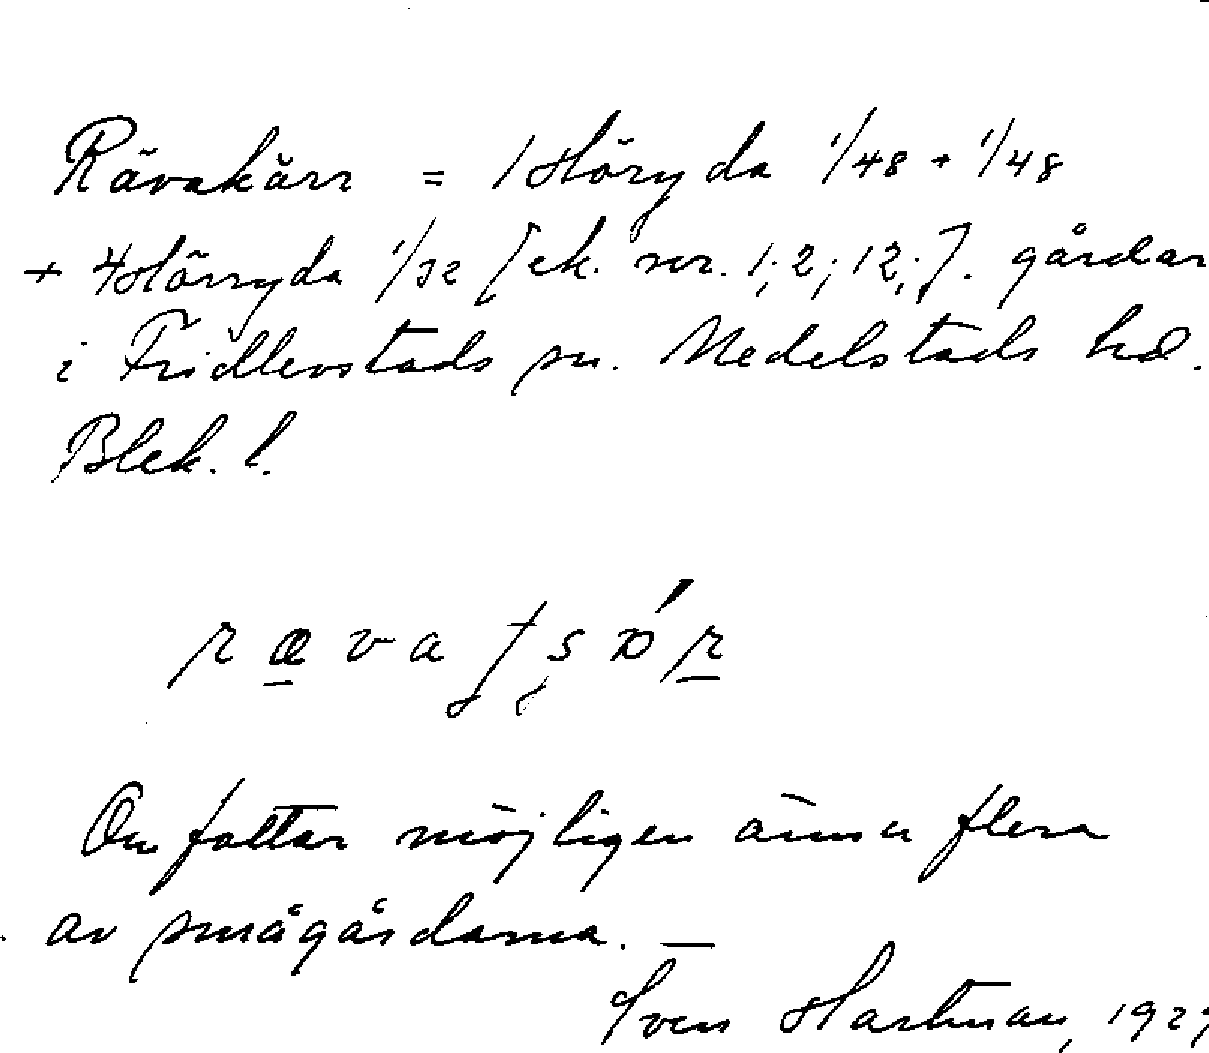 Rävakärr = 1 Höryda 1/48 + 1/48
+ 4 Hörryda 1/32 [ek. nr. 1; 2; 12;]. gårdar
i Fridlevstads sn. Medelstads hd.
Blek. l.
Omfattar möjligen ännu flera
av smågårdarna. —
Sven Hartman, 192